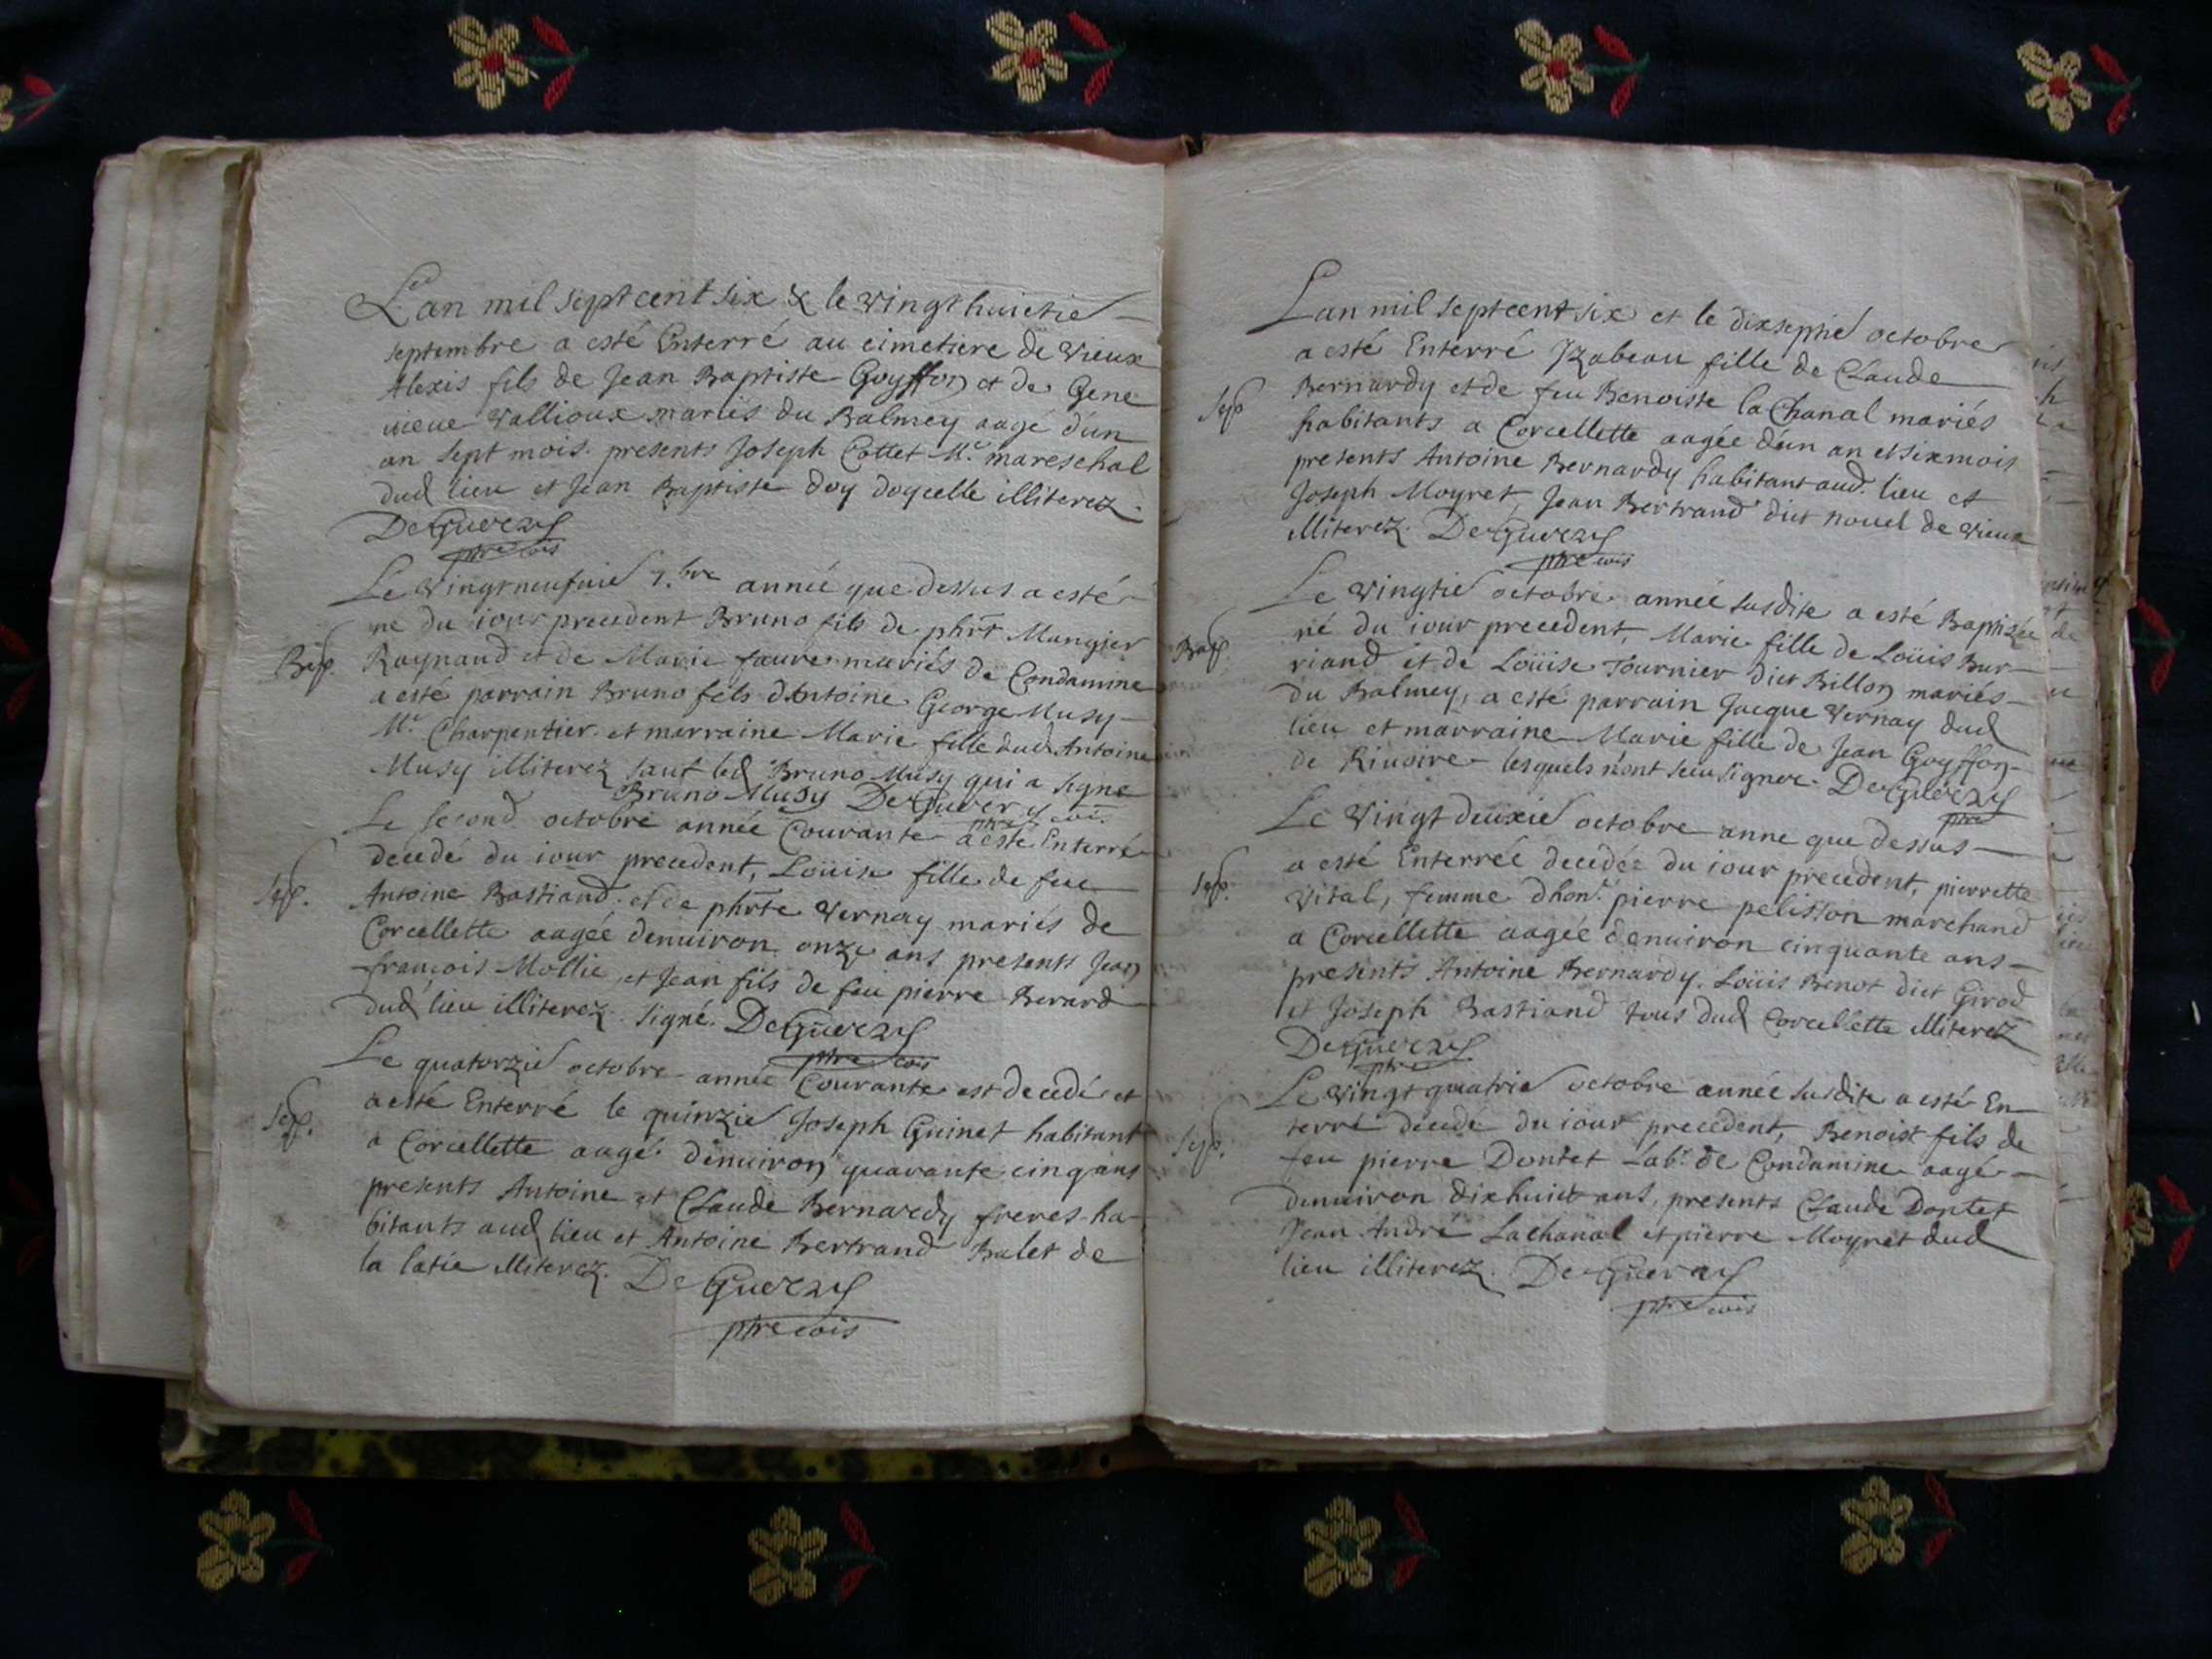 L'an mil sept cent six & le vingt huictie
septembre a esté Enterré au cimetiere de vieux
Alexis fils de Jean Baptiste Goyffon et de Gene
vieve Vallioux mariés du Balmey aagé d'un
an sept mois. presents Joseph Cottet Mc mareschal
dud lieu et Jean Baptiste doy doycelle illiterez.
DeGuerry
ptre cois
Le Vingtneufuie 7.bre année que dessus a esté
né du iour precedent Bruno fils de phrt Mungier
Bap.
Raynaud et de Marie faure mariés de Condamine
a esté parrain Bruno fils d'Antoine George Musy
Mc Charpentier et marraine Marie fille dud Antoine
Musy illiterez sauf led Bruno Musy qui a signe
Bruno Musy DeGuerry
ptre coi.
Le second octobre année Courante a esté Enterré
decedé du iour precedent, Loüise fille de feu
Sep.
Antoine Bastiand et de phrte Vernay mariés de
Corcellette aagée denuiron onze ans presents Jean
françois Mollie et Jean fils de feu pierre Berard
dud lieu illiterez. signé. DeGuerry
ptre cois
Le quatorzie octobre année Courante est decedé et
Sep.
a esté Enterré le quinzie Joseph Guinet habitant
a Corcellette aagé denuiron quarante cinq ans
presents Antoine et Claude Bernardy freres ha-
bitants aud lieu et Antoine Bertrand Balet de
la latie illiterez. DeGuerry
ptre cois
Lan mil sept cent six et le dixseptie octobre
a esté Enterré Jzabeau fille de Claude
Sep
Bernardy et de feu Benoiste la Chanal mariés
habitants a Corcellette aagée d'un an et six mois
presents Antoine Bernardy habitant aud. lieu et
Joseph Moyret, Jean Bertrand dict nouel de vieux
illiterez. DeGuerry
ptre cois
Le vingtie octobre année susdite a esté Baptizée
Bap.
né du iour precedent, Marie fille de Loüis Bur-
riand et de Loüise Tournier dict Billon mariés
du Balmey, a esté parrain Jacque Vernay dud
lieu et marraine Marie fille de Jean Goyffon
de Riuoire lesquels n'ont sceu signer. DeGuerry
ptre
Le Vingt deuxie octobre anne que dessus
a esté Enterrée decedée du iour precedent, pierrette
Sep.
Vital, femme dhon. pierre pelisson marchand
a Corcellette aagée denuiron cinquante ans
presents Antoine Bernardy. Loüis Benot dict Girod
et Joseph Bastiand tous dud Corcellette illiterez
DeGuerry.
ptre
Le Vingt quatrie octobre année susdite a esté En
terré decedé du iour precedent, Benoist fils de
Sep.
feu pierre Dontet Labr. de Condamine aagé
denuiron dixhuict ans, presents Claude Dontet
Jean André Lachanal et pierre Moyret dud
lieu illiterez. DeGuerry
ptre cois